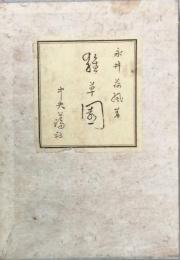 永井荷風著
雜草園
中央公論社